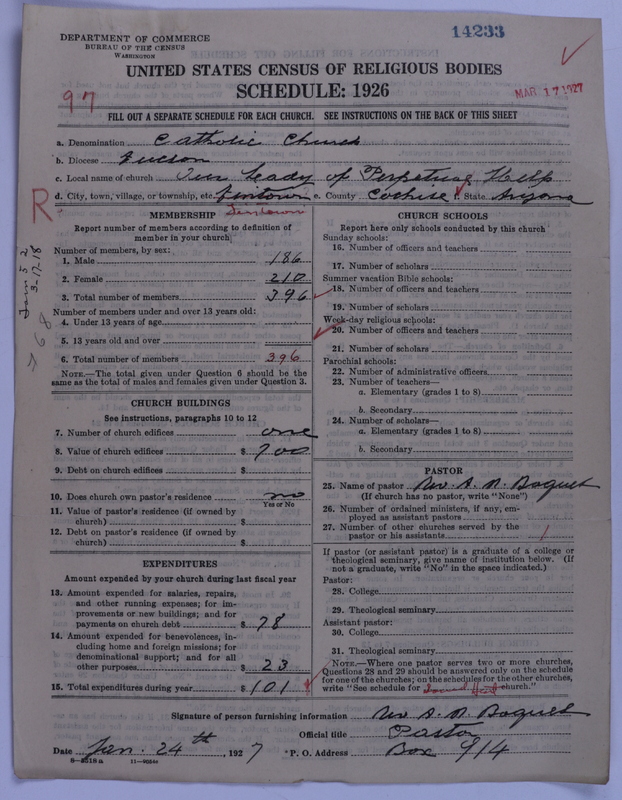 14233
DEPARTMENT OF COMMERCE
BUREAU OF THE CENSUS
WASHINGTON
UNITED STATES CENSUS OF RELIGIOUS BODIES
SCHEDULE: 1926
MAR 17 1927
97
FILL OUT A SEPARATE SCHEDULE FOR EACH CHURCH. SEE INSTRUCTIONS ON THE BACK OF THIS SHEET
a. Denomination Catholic Church
b. Diocese Tucson
c. Local name of church Our Lady of Perpetual Help
d. City, town, village, or township, etc. e. County Cochise f. State Arizona
R
MEMBERSHIP
Report number of members according to definition of
member in your church
Number of members, by sex:
1. Male 186
2. Female 210
3. Total number of members 396
Number of members under and over 13 years old:
4. Under 13 years of age
5. 13 years old and over
6. Total number of members 396
NOTE.—The total given under Question 6 should be the
same as the total of males and females given under Question 3.
3-17-18
CHURCH BUILDINGS
See instructions, paragraphs 10 to 12
7. Number of church edifices one
8. Value of church edifices $ 700
9. Debt on church edifices $
10. Does church own pastor's residence no
Yes or No
11. Value of pastor's residence (if owned by
church) $
12. Debt on pastor's residence (if owned by
church) $
EXPENDITURES
Amount expended by your church during last fiscal year
13. Amount expended for salaries, repairs,
and other running expenses; for im-
provements or new buildings; and for
payments on church debt $ 78
14. Amount expended for benevolences, in-
cluding home and foreign missions; for
denominational support; and for all
other purposes $ 23
15. Total expenditures during year $ 101
CHURCH SCHOOLS
Report here only schools conducted by this church
Sunday schools:
16. Number of officers and teachers
17. Number of scholars
Summer vacation Bible schools:
18. Number of officers and teachers
19. Number of scholars
Week-day religious schools:
20. Number of officers and teachers
21. Number of scholars
Parochial schools:
22. Number of administrative officers
23. Number of teachers—
a. Elementary (grades 1 to 8)
b. Secondary
24. Number of scholars—
a. Elementary (grades 1 to 8)
b. Secondary
PASTOR
25. Name of pastor A. N. Boquet
(If church has no pastor, write "None")
26. Number of ordained ministers, if any, em-
ployed as assistant pastors
27. Number of other churches served by the
pastor or his assistants 1
If pastor (or assistant pastor) is a graduate of a college or
theological seminary, give name of institution below. (If
not a graduate, write "No" in the space indicated.)
Pastor:
28. College
29. Theological seminary
Assistant pastor:
30. College
31. Theological seminary
NOTE.—Where one pastor serves two or more churches,
Questions 28 and 29 should be answered only on the schedule
for one of the churches; on the schedules for the other churches,
write "See schedule for Sacred Heart church."
Signature of person furnishing information A. N. Boquet
Official title Pastor
Date Jan. 24th, 1927 P. O. Address Box 914
8-5518 a 11-9056